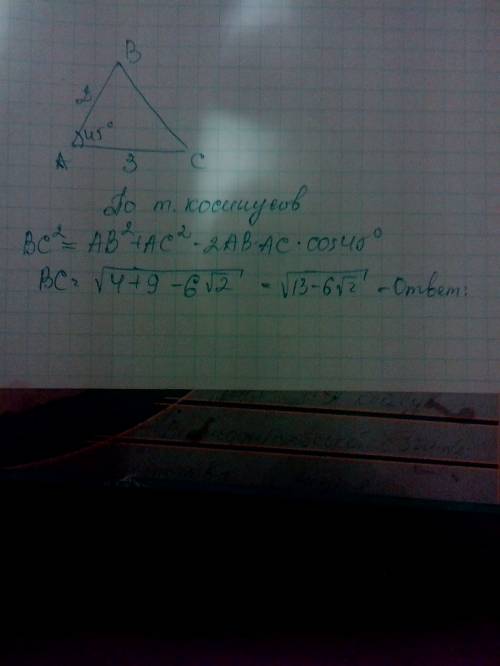 B
2
45°
A
3
C
По т. косинусов
BC² = AB² + AC² - 2AB·AC · cos45°
BC = √(4+9 - 6√2) = √(13 - 6√2) - Ответ: